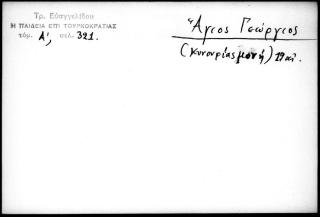 Τρ. Εὐαγγελίδου
Η ΠΑΙΔΕΙΑ ΕΠΙ ΤΟΥΡΚΟΚΡΑΤΙΑΣ
τόμ. Α', σελ. 321.
Ἅγιος Γεώργιος
(Κυνουρίας μονή) 19 αἰ.